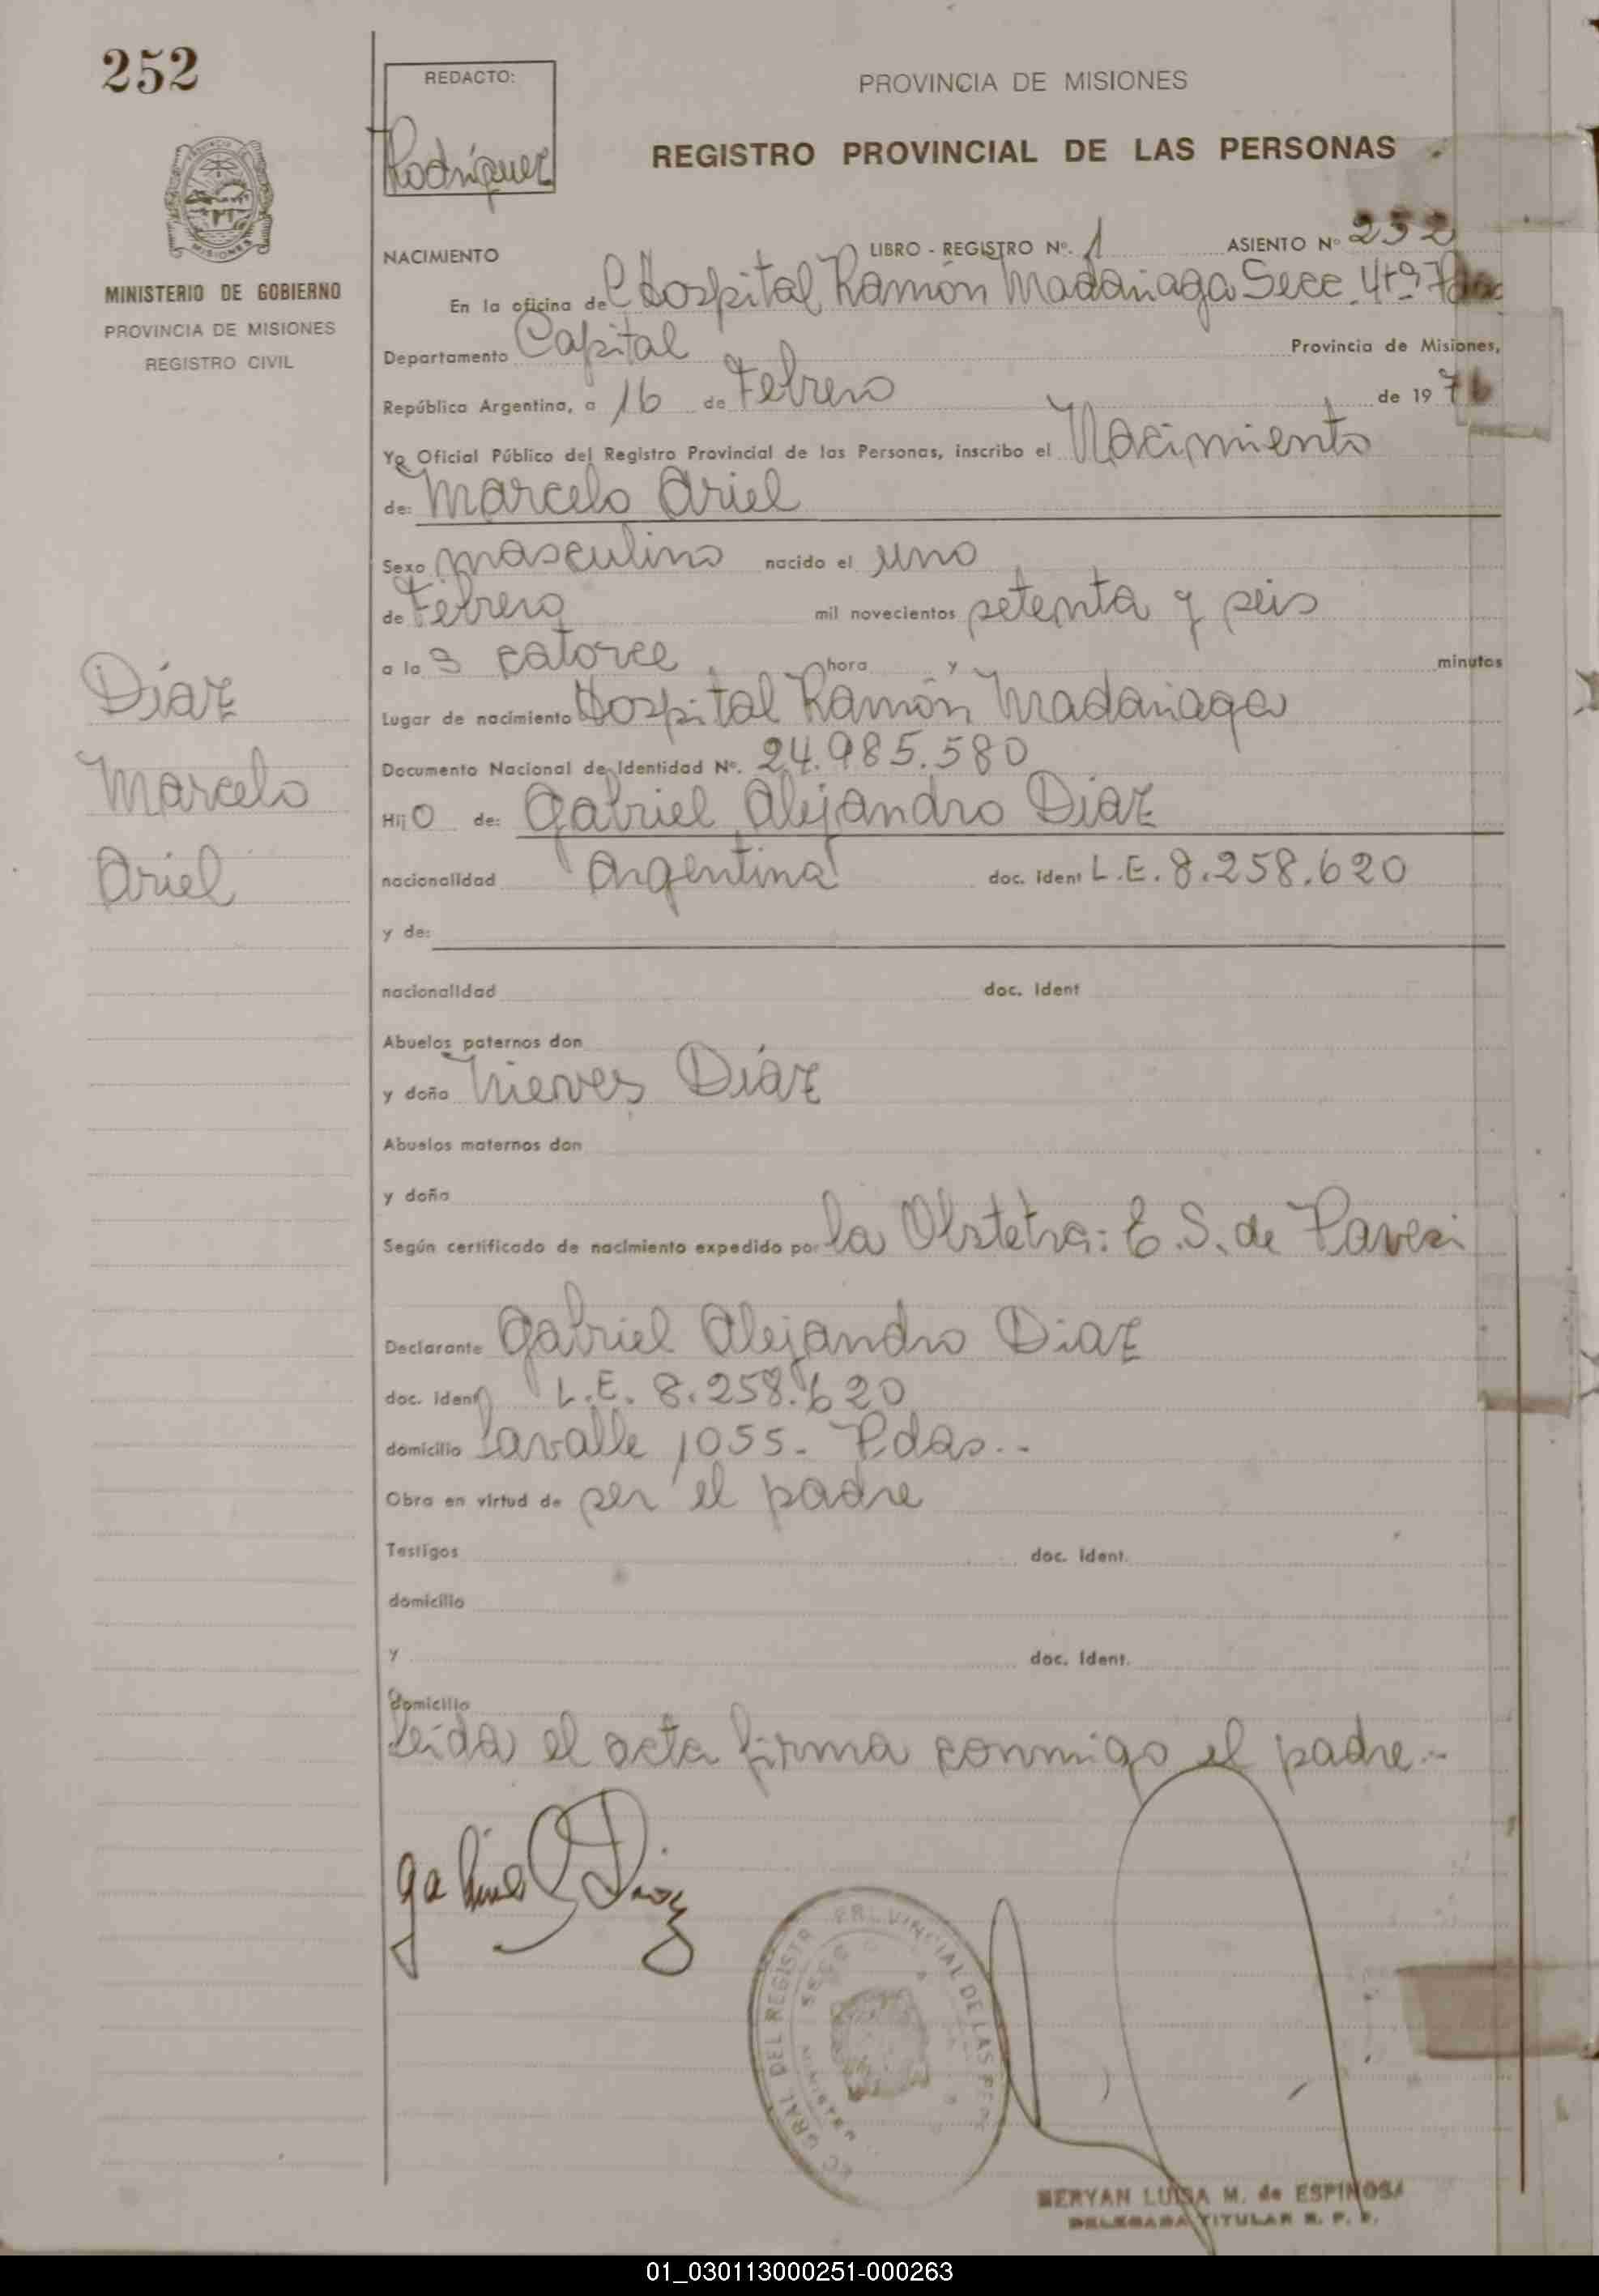 252
REDACTO:
Rodríguez
PROVINCIA DE MISIONES
REGISTRO PROVINCIAL DE LAS PERSONAS
MINISTERIO DE GOBIERNO
PROVINCIA DE MISIONES
REGISTRO CIVIL
NACIMIENTO LIBRO - REGISTRO Nº. 1 ASIENTO Nº 252
En la oficina de Hospital Ramón Madariaga Secc. 4ta
Departamento Capital Provincia de Misiones,
República Argentina, a 16 de Febrero de 1976
Yo Oficial Público del Registro Provincial de las Personas, inscribo el Nacimiento
de: Marcelo Ariel
Sexo masculino nacido el uno
de Febrero mil novecientos setenta y seis
a las catorce hora y minutos
Lugar de nacimiento Hospital Ramón Madariaga
Documento Nacional de Identidad Nº. 24.985.580
Hijo de: Gabriel Alejandro Diaz
nacionalidad Argentina doc. ident L.E. 8.258.620
y de:
nacionalidad doc. ident
Abuelos paternos don
y doña Nieves Diaz
Abuelos maternos don
y doña
Según certificado de nacimiento expedido por la Obstetra: E.S. de Pavesi
Declarante Gabriel Alejandro Diaz
doc. ident L.E. 8.258.620
domicilio Lavalle 1055 - Pdas..-
Obra en virtud de ser el padre
Testigos doc. ident.
domicilio
y doc. ident.
domicilio
Leida el acta firma conmigo el padre.-
Díaz
Marcelo
Ariel
Gabriel Diaz
GRAL DEL REGISTRO PROVINCIAL DE LAS PERS
MERYAN LUISA M. de ESPINOSA
DELEGADA TITULAR R. P. P.
01_030113000251-000263